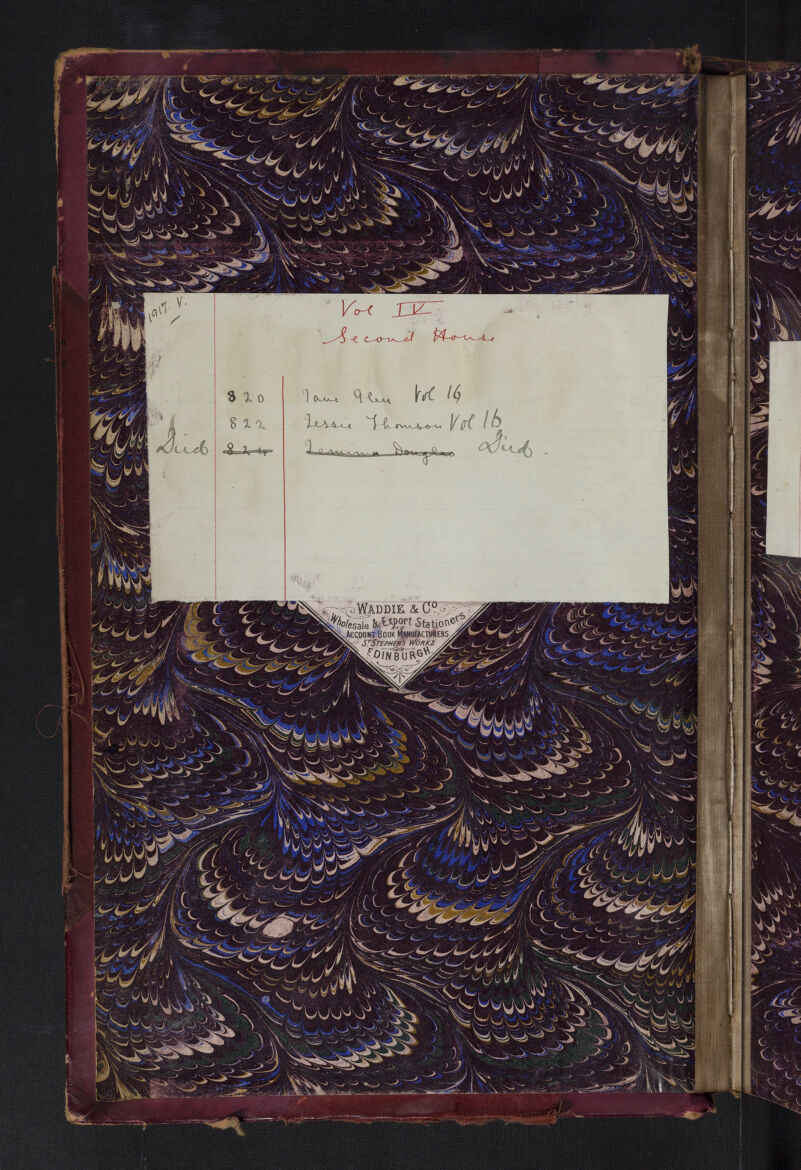 1917. V.
Vol IV
Second House
820 Jane Glen Vol 16
822 Jessie Thomson Vol 16
Died 824 Jemima Douglas Died.
WADDIE & Co
Wholesale & Export Stationers
And
ACCOUNT BOOK MANUFACTURERS
ST STEPHENS WORKS
EDINBURGH